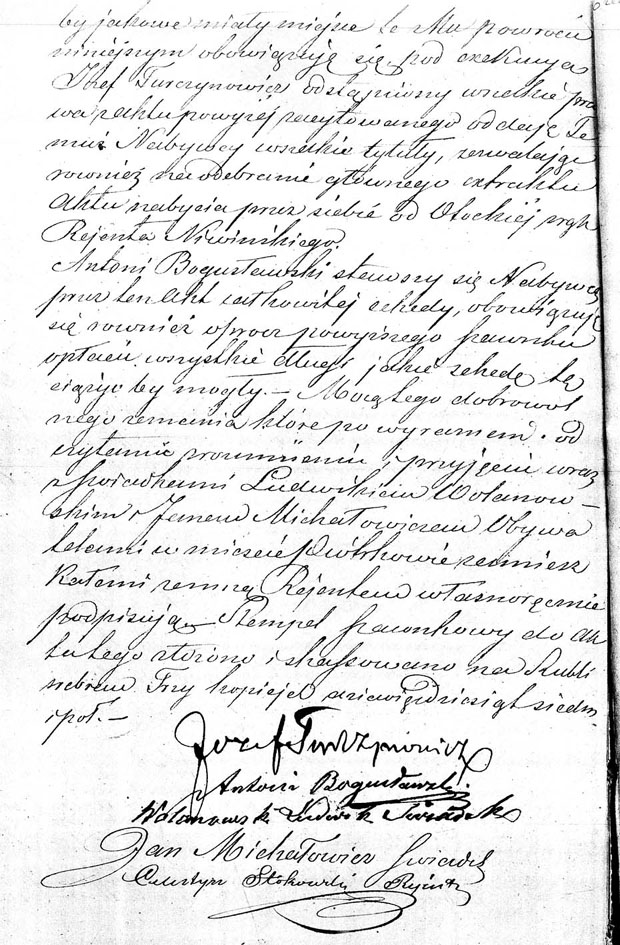 by jakowe miały miejsce te Mu powrócić
niniejszym obowiązują się pod exekucyą
Józef Turczynowicz odstąpiwszy wszelkie pra
wa z aktu powyżej zacytowanego oddaje Te
muż Nabywcy wszelkie tytuły, zezwalając
również na odebranie głównego extraktu
Aktu nabycia przez siebie od Otockiéj
Rejenta Niwińskiego.
Antoni Bogusławski stawszy się Nabywcą
przez ten Akt całkowitej schedy, obowiązuje
się również oprócz powyższego szacunku
opłacić wszystkie długi jakie schedę tą
ciążyć by mogły. — Mocą tego dobrowol
nego zeznania które po wyrazném od
czytaniu zrozumieniu i przyjęciu wraz
z Świadkami Ludwikiem Wolanow-
skim i Janem Michałowiczem Obywa
telami w mieście Piotrkowie zamiesz
kałemi zemną Rejentem własnoręcznie
podpisują — Stempel szacunkowy do Ak
tu tego złożono i skassowano na Rubli
srebrem Trzy kopiejek dziewięćdziesiąt siedm
i pół. —
Jozef Turczynowicz
Antoni Bogusławski.
Wolanowski Ludwik Świadek
Jan Michałowicz Świadek
Celestyn Stokowski Rejent